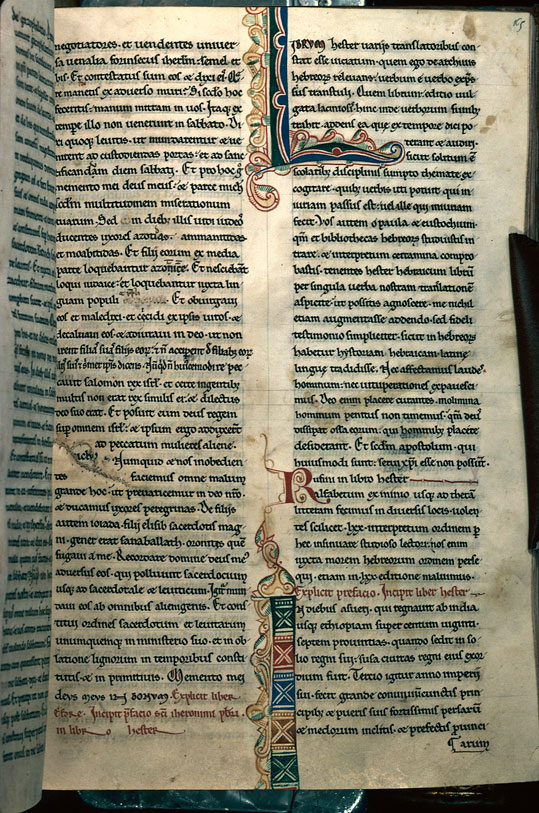 negotiatores· et uendentes uniuer
sa uenalia forinsecus iherlm· semel et
bis· Et contestatus sum eos· & dixi eis· Q̃
re manetis ex aduerso muri· Si scđo hoc
feceritis· manum mittam in uos· Itaq; ex
tempe illo non uenerunt in sabbato· Di
xi quoq; leuitis· ut mundarentur & ue
nirent ad custodiendas portas· et ad sanc
tificandam diem sabbati· Et pro hoc g̊
memento mei deus meus· & parce mich
scđm multitudinem miserationum
tuarum· Sed in dieb; illis uidi iudeos
ducentes uxores azotidas· ammanitidas
et moabitidas· Et filij eorum ex media
parte loquebantur azotice· Et nesciebant
loqui iudaice· et loquebantur iuxta lin
guam populi Et obiurgaui
eos et maledixi· et cecidi ex ipsis uiros· &
decaluaui eos· & adiuraui in deo· ut non
darent filias suas filijs eor· et non acciperent de filiab; eor
filijs suis et sibimet ipsis dicens· Nunquid non in huiuscemodi re pec
cauit salomon rex isrl· et certe in gentib;
multis non erat rex similis ei· & dilectus
deo suo erat· Et posuit eum deus regem
sup omnem isrl· & ipsum ergo adduxerunt
ad peccatum mulieres aliene·
Nunquid & nos inobedien
tes faciemus omne malum
grande hoc· ut preuaricemur in deo nro·
& ducamus uxores peregrinas· De filijs
autem ioiada· filij elisib sacerdotis mag
ni· gener erat sanaballath· oronites quem
fugaui a me· Recordare domine deus meus
aduersus eos· qui polluunt sacerdocium
iusq; ad sacerdotale & leuiticum· Igit̃ mun
daui eos ab omnibus alienigenis· Et cons
titui ordines sacerdotum et leuitarum
unumquemq; in ministerio suo· et in ob
latione lignorum in temporibus consti
tutis· & in primitiuis· Memento mei
deus meus in bonum· Explicit liber
Esdre· Incipit p̃facio sci iheronimi pbri
in libro hester
LIBRUM hester uarijs translatoribus con
stat esse uiciatum· quem ego de archiuis
hebreorum releuans· uerbum e uerbo exp̃s
sius transtuli· Quem librum· editio uul
gata laciniosis hinc inde uerborum sinibus
trahit· addens ea que ex tempore dici po
terant & audiri·
sicut solitum est
scolarib; disciplinis sumpto themate ex
cogitare· quib; uerbis uti potuit qui in
iuriam passus est· uel ille qui iniuriam
fecit· Vos autem o paula & eustochium·
qm̃ et bibliothecas hebreorum studuistis in
trare· & interpretum certamina compro
bastis· tenentes hester hebraicum librum
per singula uerba nostram translationem
aspicite· ut possitis agnoscere· me nichil
etiam augmentasse addendo· sed fideli
testimonio simpliciter· sicut in hebreo
habetur hystoriam hebraicam· latine
lingue tradidisse· Nec affectamus laudes
hominum· nec uituperationes expauesci
mus· Deo enim placere curantes· molimina
hominum penitus non timemus· qm̃ deus
dissipat ossa eorum· qui hominib; placere
desiderant· Et scdm̃ apostolum· qui
huiusmodi sunt· serui xp̃i esse non possunt·
Rufini in libro hester
Alfabetum ex minio usq; ad theta·
litteram fecimus in diuersis locis· uolen
tes scilicet· lxx· interpretum ordinem p̱
hec insinuare studioso lectori· nos enim
iuxta morem hebreorum ordinem perse
qui· etiam in lxx· editione maluimus·
Explicit prefacio· Incipit liber hester
In diebus asueri· qui regnauit ab india·
usq; ethiopiam super centum uiginti·
septem prouintias· quando sedit in so
lio regni sui· susa ciuitas regni eius exor
dium fuit· Tercio igitur anno imperij
sui· fecit grande conuiuium cunctis prin
cipib; & pueris suis fortissimis persarum
& medorum inclitis· & prefectis prouinci
arum